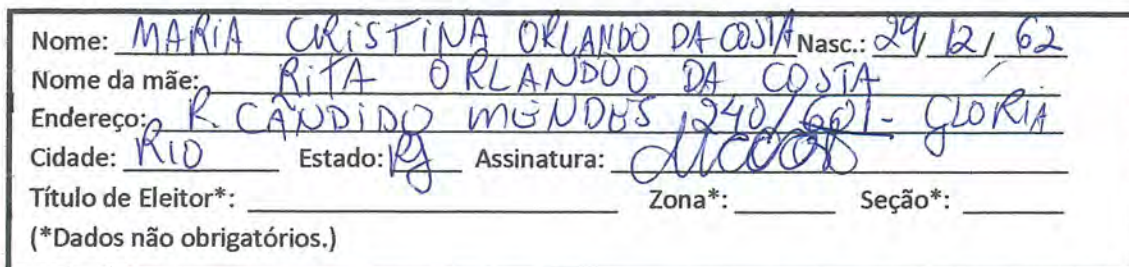 Nome: MARIA CRISTINA ORLANDO DA COSTA Nasc.: 29/12/62
Nome da mãe: RITA ORLANDO DA COSTA
Endereço: R. CÂNDIDO MENDES, 240/601 - GLORIA
Cidade: RIO Estado: RJ Assinatura:
Título de Eleitor*: Zona*: Seção*:
(*Dados não obrigatórios.)